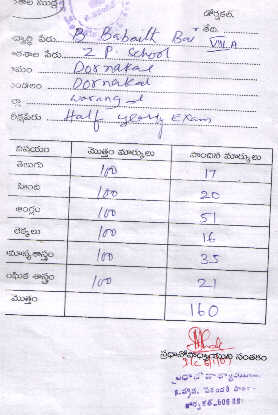 డోర్నకల్.
B Babailt Bai VIII.A
పాఠశాల పేరు.. Z P. School
Dornakal
Dornakal
Warangal
Half yearly Exam
విషయం మొత్తం మార్కులు పొందిన మార్కులు
తెలుగు 100 17
హింది 100 20
ఆంగ్లం 100 51
లెక్కలు 100 16
సామాన్యశాస్త్రం 100 35
సాంఘిక శాస్త్రం 100 21
మొత్తం 160
ప్రధానోపాధ్యాయుని సంతకం
ప్రధానోపాధ్యాయులు